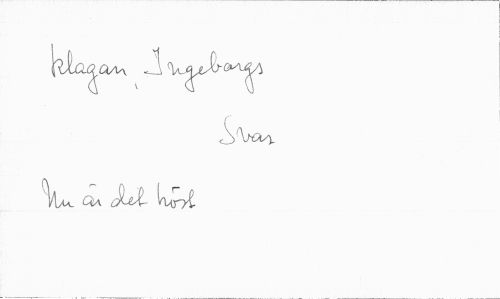 Klagan, Ingeborgs
Svar
Nu är det höst